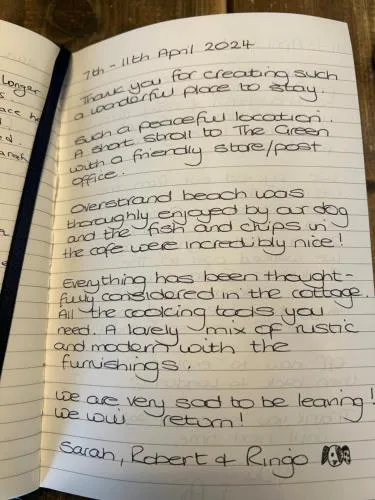 7th - 11th April 2024
Thank you for creating such
a wonderful place to stay.
Such a peaceful location.
A short stroll to The Green
with a friendly store/post
office.
Overstrand beach was
thoroughly enjoyed by our dog
and the fish and chips in
the cafe were incredibly nice!
Everything has been thought-
fully considered in the cottage.
All the cooking tools you
need. A lovely mix of rustic
and modern with the
furnishings.
We are very sad to be leaving!
We will return!
Sarah, Robert & Ringo
longer